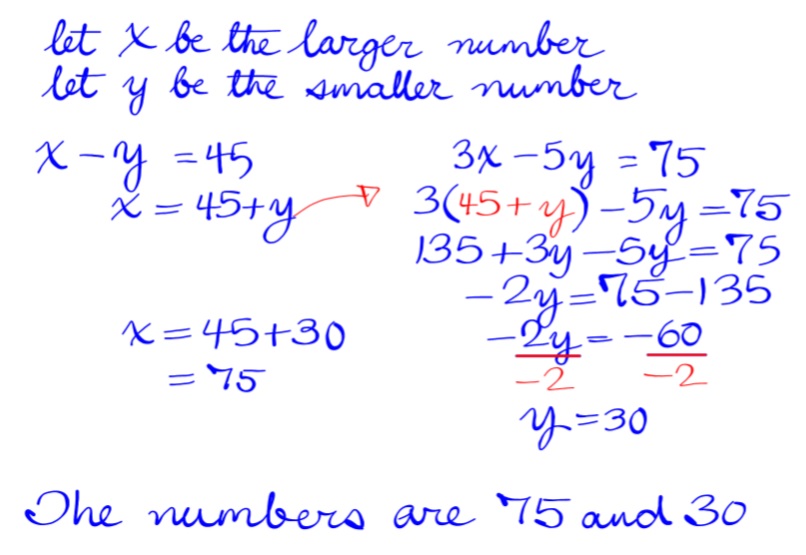 let x be the larger number
let y be the smaller number
x - y = 45
x = 45+y
3x - 5y = 75
3(45+y) - 5y = 75
135 + 3y - 5y = 75
-2y = 75 - 135
-2y = -60
-2 -2
y = 30
x = 45+30
= 75
The numbers are 75 and 30